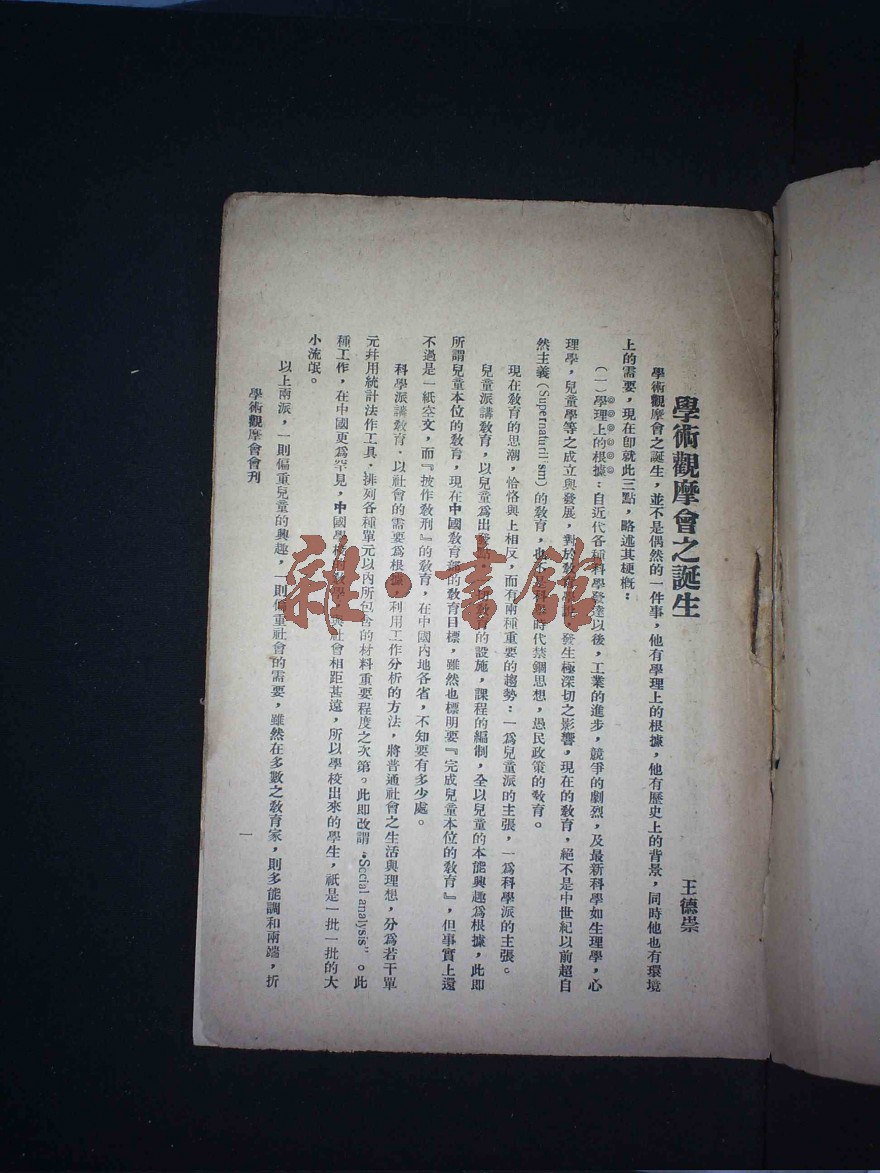 學術觀摩會之誕生
王德崇
學術觀摩會之誕生，並不是偶然的一件事，他有學理上的根據，他有歷史上的背景，同時他也有環境
上的需要，現在卽就此三點，略述其梗槪：
（一）學理上的根據：自近代各種科學發達以後，工業的進步，競爭的劇烈，及最新科學如生理學，心
理學，兒童學等之成立與發展，對於敎育 發生極深切之影響，現在的敎育，絕不是中世紀以前超自
然主義（Supernaturilism）的敎育，也不是科學時代禁錮思想，愚民政策的敎育。
現在敎育的思潮，恰恰與上相反，而有兩種重要的趨勢：一爲兒童派的主張，一爲科學派的主張。
兒童派講敎育，以兒童爲出發點，一切敎育的設施，課程的編制，全以兒童的本能興趣爲根據，此即
所謂兒童本位的敎育，現在中國敎育部的敎育目標，雖然也標明要『完成兒童本位的敎育』，但事實上還
不過是一紙空文，而『披作敎刑』的敎育，在中國內地各省，不知要有多少處。
科學派講敎育，以社會的需要爲根據，利用工作分析的方法，將普通社會之生活與理想，分爲若干單
元幷用統計法作工具，排列各種單元以內所包含的材料重要程度之次第。此即改謂“Social analysis”。此
種工作，在中國更爲罕見，中國學校的敎學，與社會相距甚遠，所以學校出來的學生，祇是一批一批的大
小流氓。
以上兩派，一則偏重兒童的興趣，一則偏重社會的需要，雖然在多數之敎育家，則多能調和兩端，折
學術觀摩會會刊
一
雜·書館